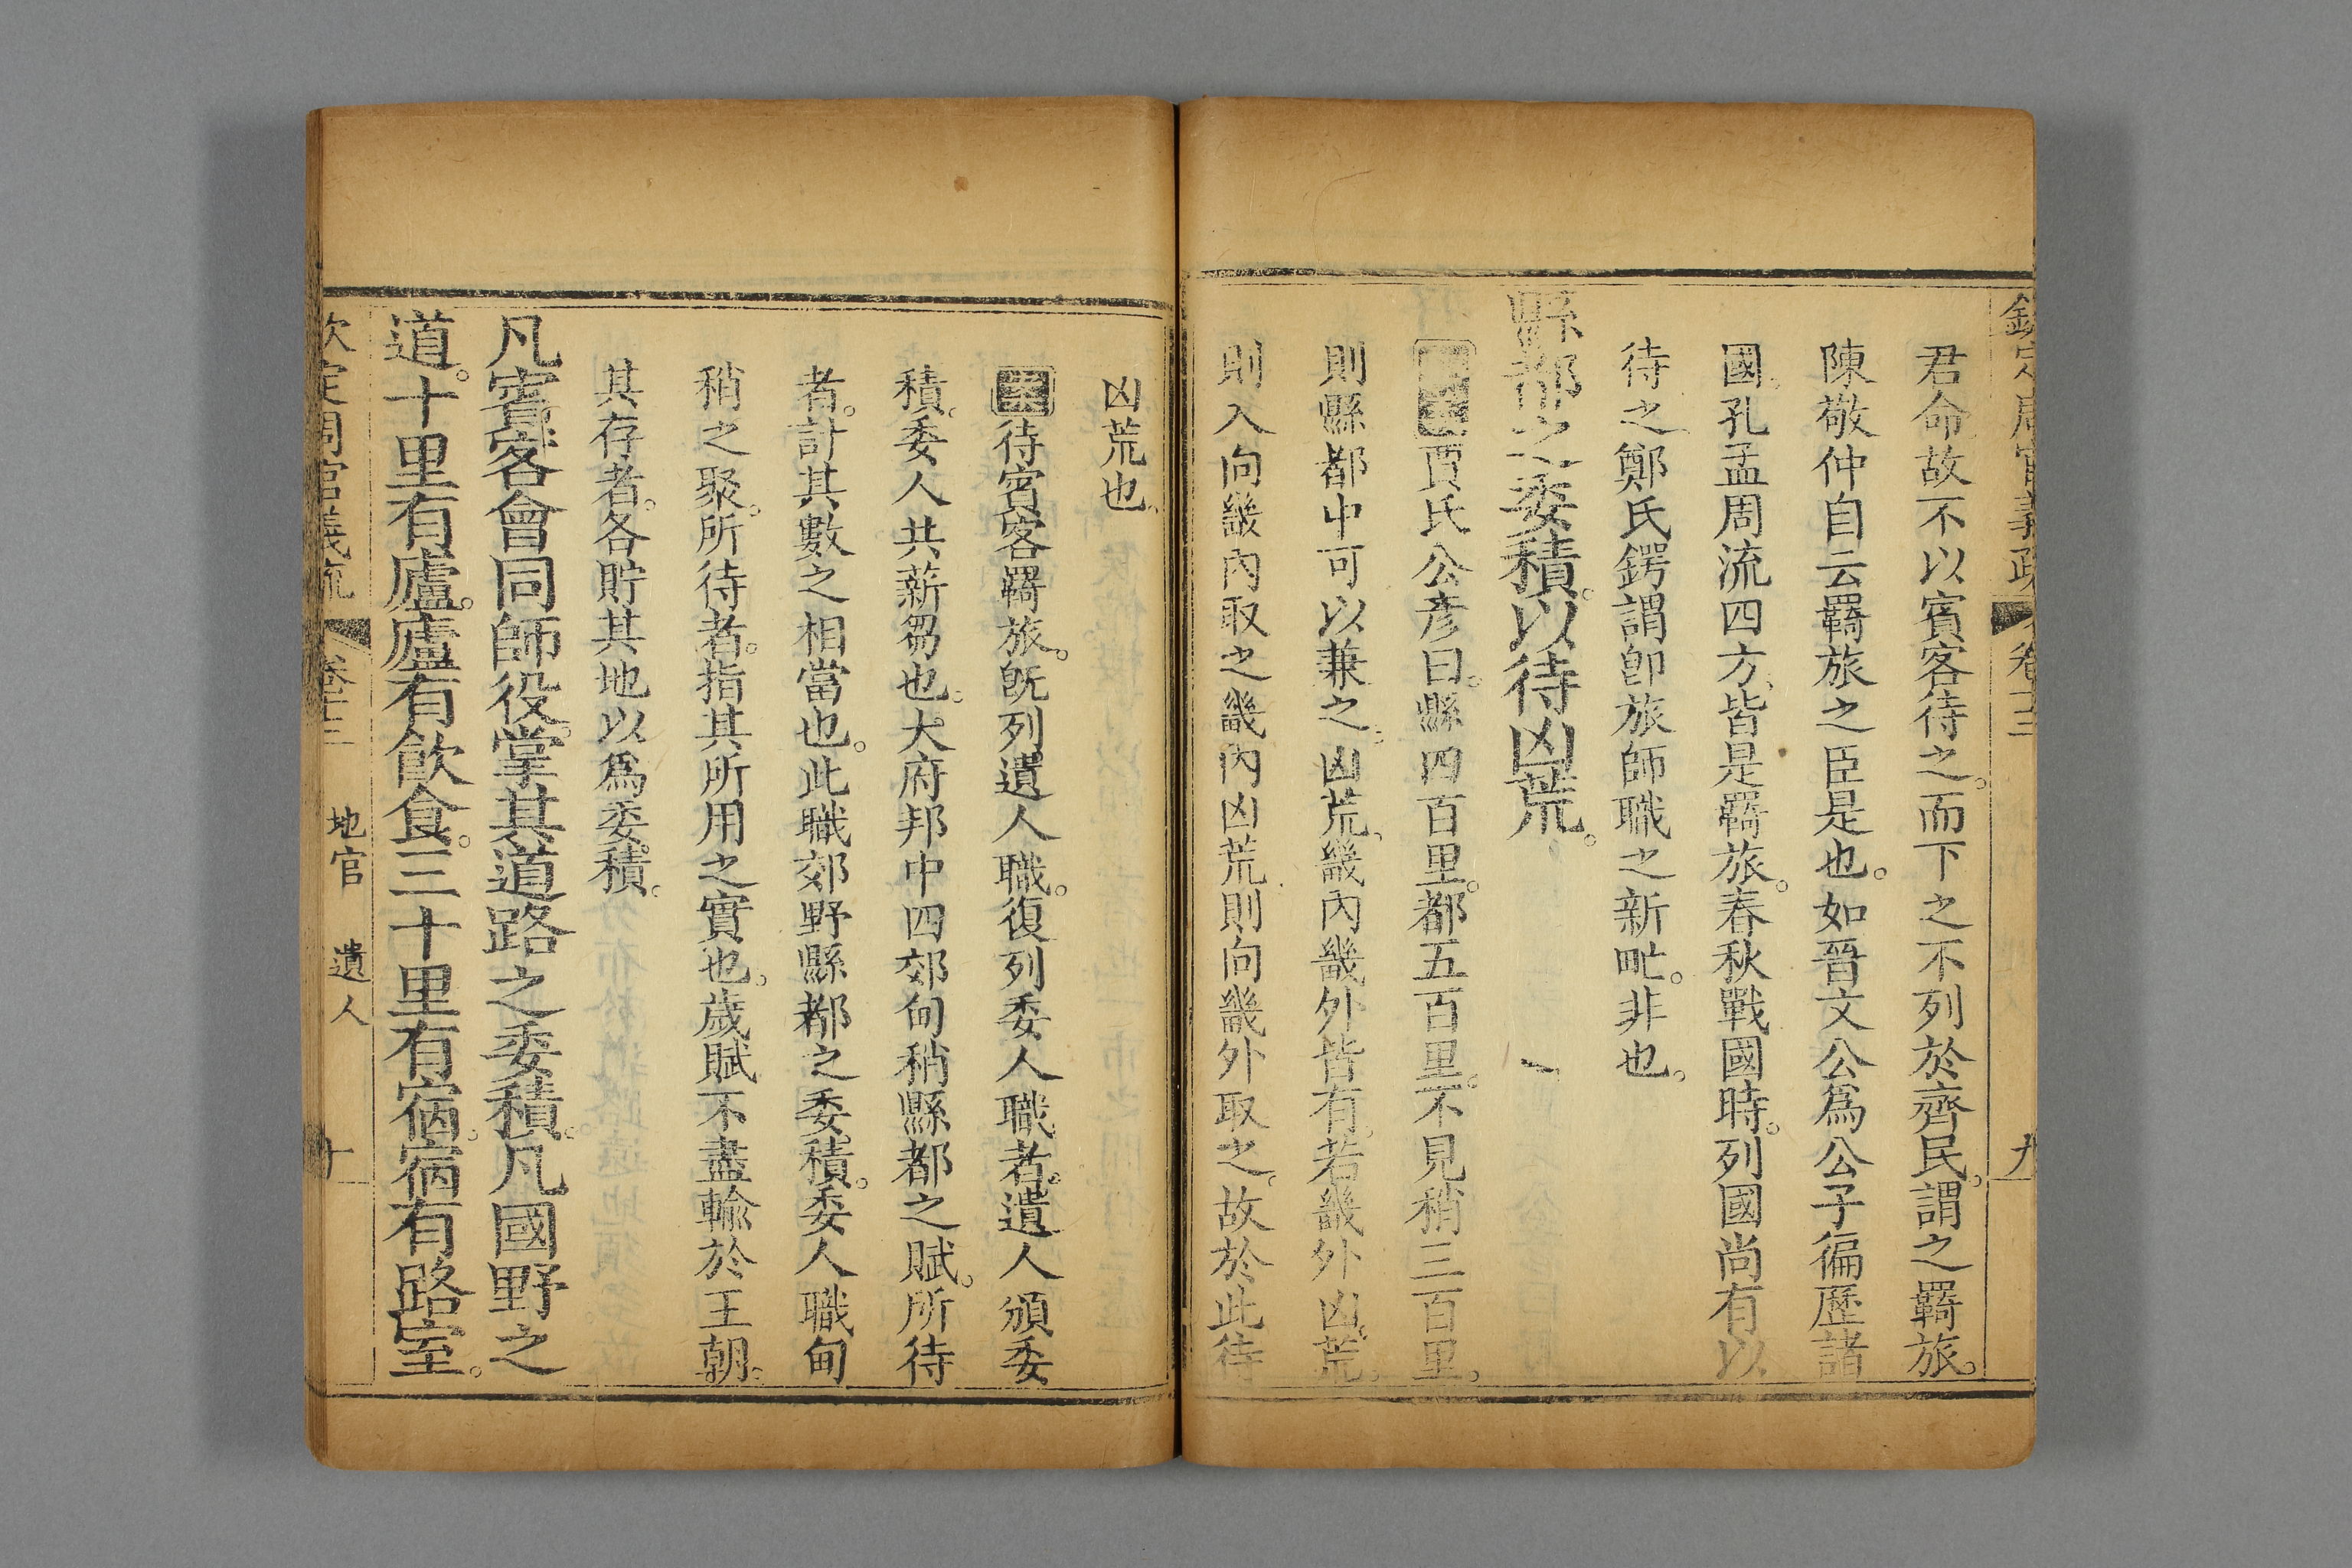 欽定周官義疏 卷十三 九
君命故不以賓客待之。而下之不列於齊民。謂之羇旅。
陳敬仲自云羇旅之臣是也。如晉文公爲公子徧歷諸
國。孔孟周流四方、皆是羇旅。春秋戰國時。列國尚有以
待之鄭氏鍔謂卽旅師職之新甿。非也。
縣都之委積。以待凶荒。
賈氏公彥曰。縣四百里。都五百里。不見稍三百里。
則縣都中可以兼之。凶荒、畿內畿外皆有。若畿外凶荒。
則入向畿內取之畿內凶荒則向畿外取之。故於此待
凶荒也
待賓客羇旅。旣列遺人職。復列委人職者。遺人頒委
積。委人共薪芻也。大府邦中四郊甸稍縣都之賦。所待
者。計其數之相當也。此職郊野縣都之委積。委人職甸
稍之聚。所待者。指其所用之實也。歲賦不盡輸於王朝。
其存者。各貯其地以爲委積。
凡賓客會同師役。掌其道路之委積。凡國野之
道。十里有廬。廬有飮食。三十里有宿。宿有路室。
欽定周官義疏 卷十三 地官 遺人 十